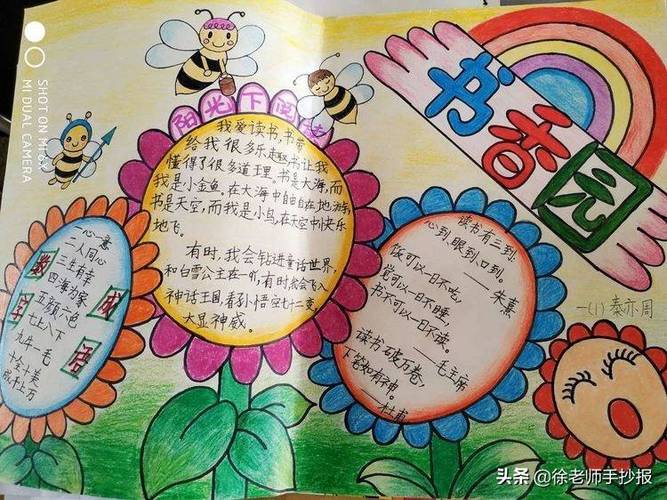 SHOT ON MI 6X
MI DUAL CAMERA
书香园
阳光下阅读
我爱读书,书带
给我很多乐趣,书让我
懂得了很多道理。书是大海,而
我是小金鱼,在大海中自由自在地游;
书是天空,而我是小鸟,在天空中快乐
地飞。
有时,我会钻进童话世界,
和白雪公主在一听,有时我会飞入
神话王国,看孙悟空七十二变,
大显神威。
数字成语
一心一意
二人同心
三生有幸
四海为家
五颜六色
七上八下
九牛一毛
十全十美
成千上万
读书有三到:
心到、眼到、口到。
——朱熹
饭可以一日不吃,
觉可以一日不睡,
书不可以一日不读。
——毛主席
读书破万卷,
下笔如有神。
——杜甫
一(1)秦亦周
头条 @徐老师手抄报